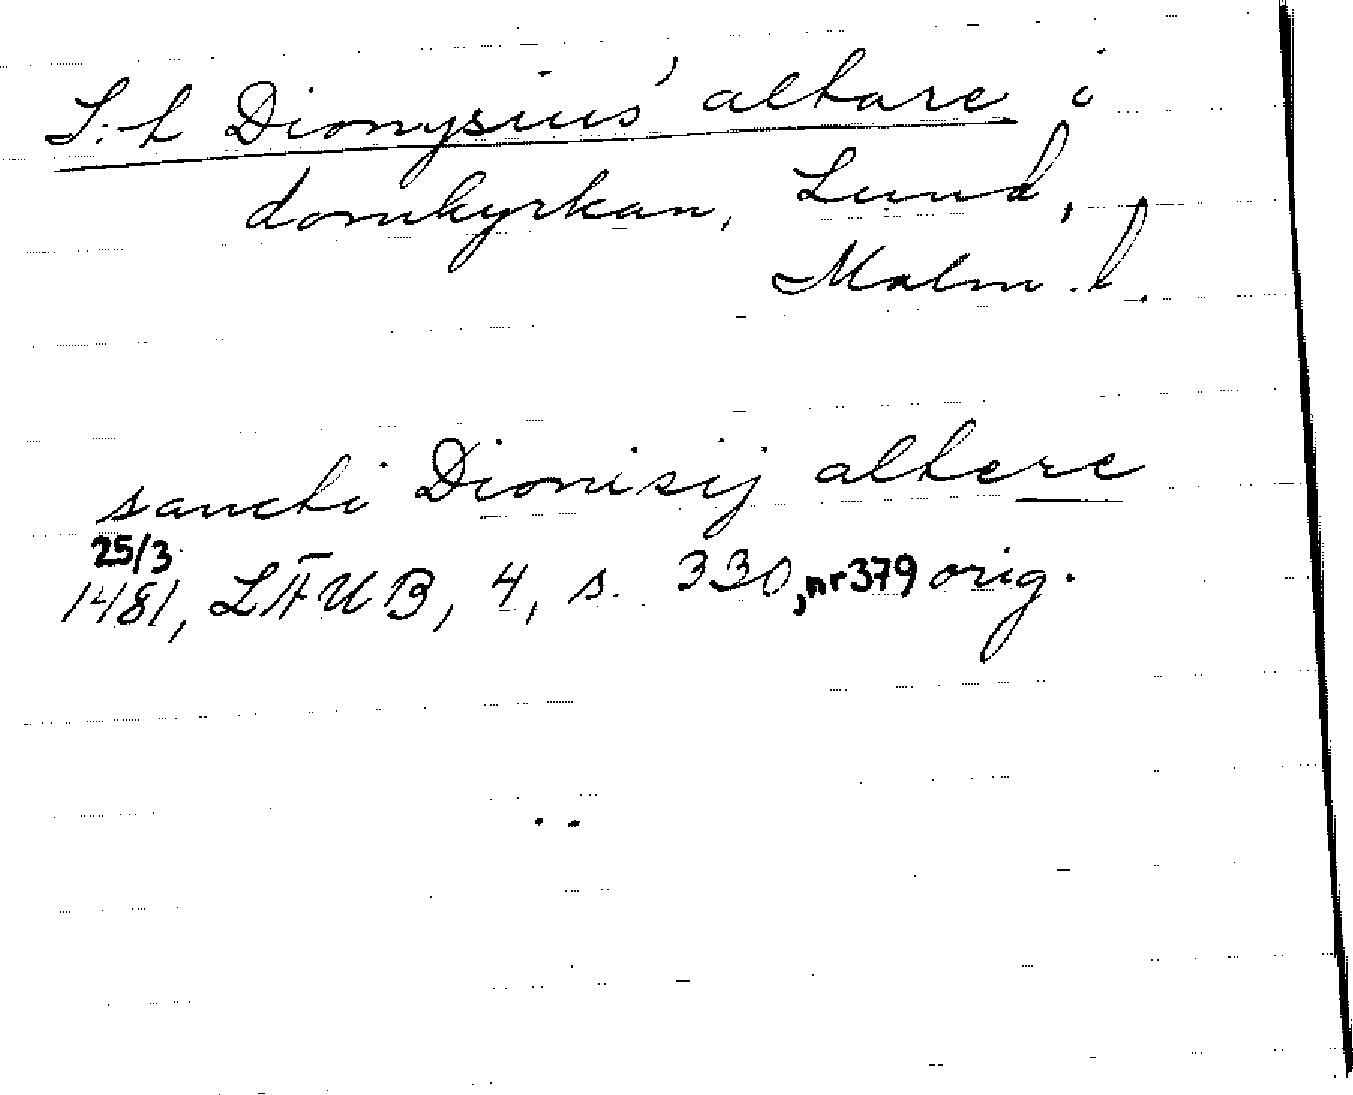 S:t Dionysius' altare i
domkyrkan, Lund,
Malm. l.
sancti Dionisij altere
25/3
1481, LÄUB, 4, s. 330, nr 379 orig.